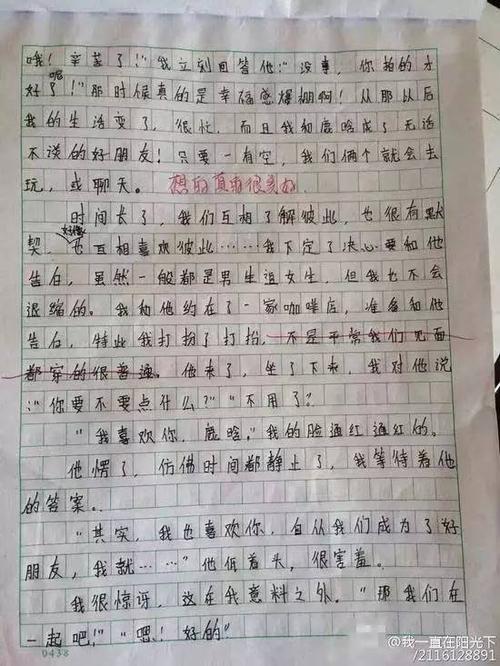 哦！辛苦了！"我立刻回答他："没事，你拍的才
好呢了！"那时候真的是幸福感爆棚啊！从那以后
我的生活变了，很忙，而且我和鹿晗成了无话
不谈的好朋友！只要一有空，我们俩个就会去
玩，或聊天。想的真有很美好
时间长了，我们互相了解彼此，也很有默
契，好像也互相喜欢彼此……我下定了决心要和他
告白，虽然一般都是男生追女生，但我也不会
退缩的。我和他约在了一家咖啡店，准备和他
告白，特此我打扮了打扮，不是平常我们见面
都穿的很普通。他来了，坐了下来，我对他说
："你要不要点什么？""不用了？"
"我喜欢你，鹿晗。"我的脸通红通红的。
他愣了，仿佛时间都静止了，我等待着他
的答案。
"其实，我也喜欢你，自从我们成为了好
朋友，我就……"他低着头，很害羞。
我很惊讶，这在我意料之外。"那我们在
一起吧！""嗯！好的"
0438
@我一直在阳光下
/2116128891